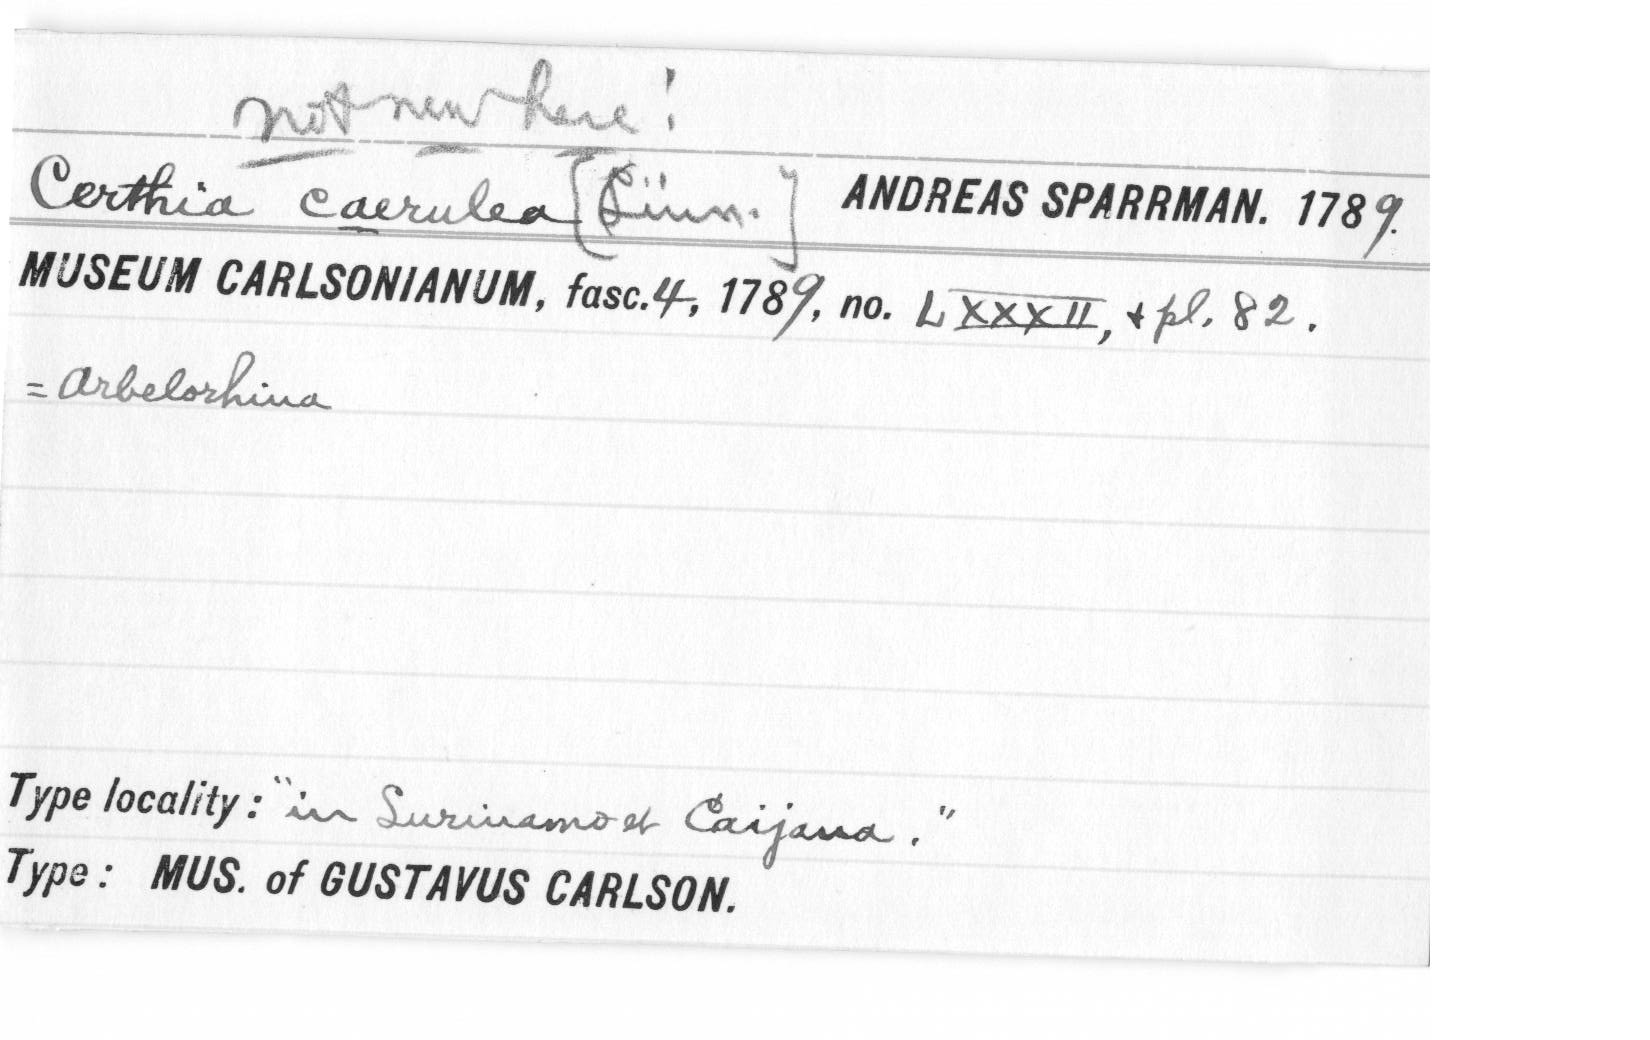 not new here!
Certhia caerulea [Linn.] ANDREAS SPARRMAN. 1789.
MUSEUM CARLSONIANUM, fasc. 4, 1789, no. LXXXII, + pl. 82.
= Arbelorhina
Type locality: "in Surinamo et Caijana."
Type: MUS. of GUSTAVUS CARLSON.